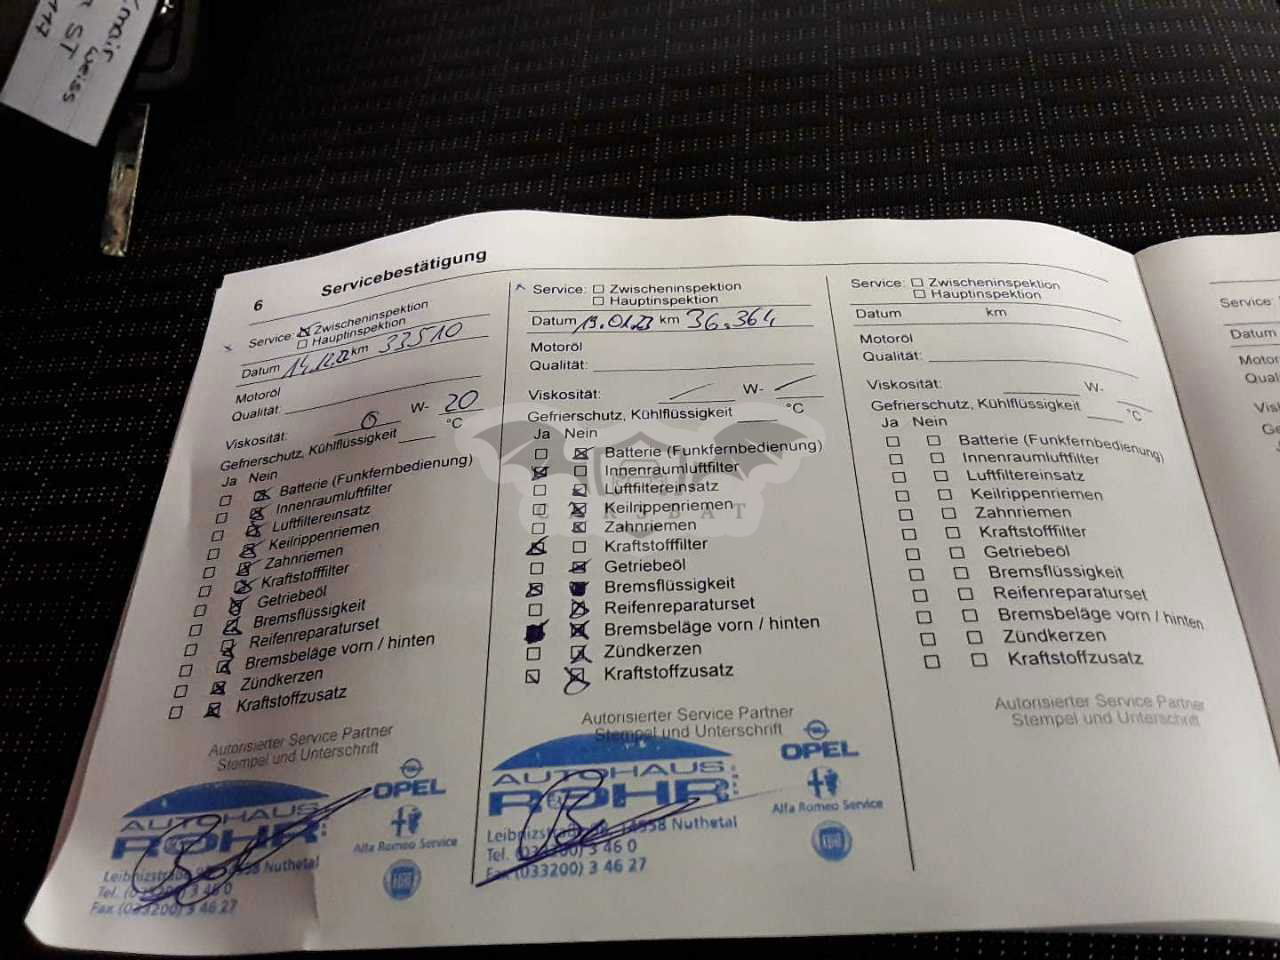 weiss
ST
117
6 Servicebestätigung
Service: Zwischeninspektion
Hauptinspektion
Datum 14.12.22 km 33.510
Motoröl
Qualität:
Viskosität: 0 W- 20
Gefrierschutz, Kühlflüssigkeit °C
Ja Nein
Batterie (Funkfernbedienung)
Innenraumluftfilter
Luftfiltereinsatz
Keilrippenriemen
Zahnriemen
Kraftstofffilter
Getriebeöl
Bremsflüssigkeit
Reifenreparaturset
Bremsbeläge vorn / hinten
Zündkerzen
Kraftstoffzusatz
Autorisierter Service Partner
Stempel und Unterschrift
AUTOHAUS
RÖHR
OPEL
Alfa Romeo Service
FIAT
Nuthetal
Tel. (033200) 3 46 0
Fax (033200) 3 46 27
Service: Zwischeninspektion
Hauptinspektion
Datum 19.01.23 km 36.364
Motoröl
Qualität:
Viskosität: W-
Gefrierschutz, Kühlflüssigkeit °C
Ja Nein
Batterie (Funkfernbedienung)
Innenraumluftfilter
Luftfiltereinsatz
Keilrippenriemen
Zahnriemen
Kraftstofffilter
Getriebeöl
Bremsflüssigkeit
Reifenreparaturset
Bremsbeläge vorn / hinten
Zündkerzen
Kraftstoffzusatz
Autorisierter Service Partner
Stempel und Unterschrift
AUTOHAUS
RÖHR
OPEL
Alfa Romeo Service
FIAT
14558 Nuthetal
Tel. (033200) 3 46 0
Fax (033200) 3 46 27
Service: Zwischeninspektion
Hauptinspektion
Datum km
Motoröl
Qualität:
Viskosität: W-
Gefrierschutz, Kühlflüssigkeit °C
Ja Nein
Batterie (Funkfernbedienung)
Innenraumluftfilter
Luftfiltereinsatz
Keilrippenriemen
Zahnriemen
Kraftstofffilter
Getriebeöl
Bremsflüssigkeit
Reifenreparaturset
Bremsbeläge vorn / hinten
Zündkerzen
Kraftstoffzusatz
Autorisierter Service Partner
Stempel und Unterschrift
Service:
Datum
CARSBAT